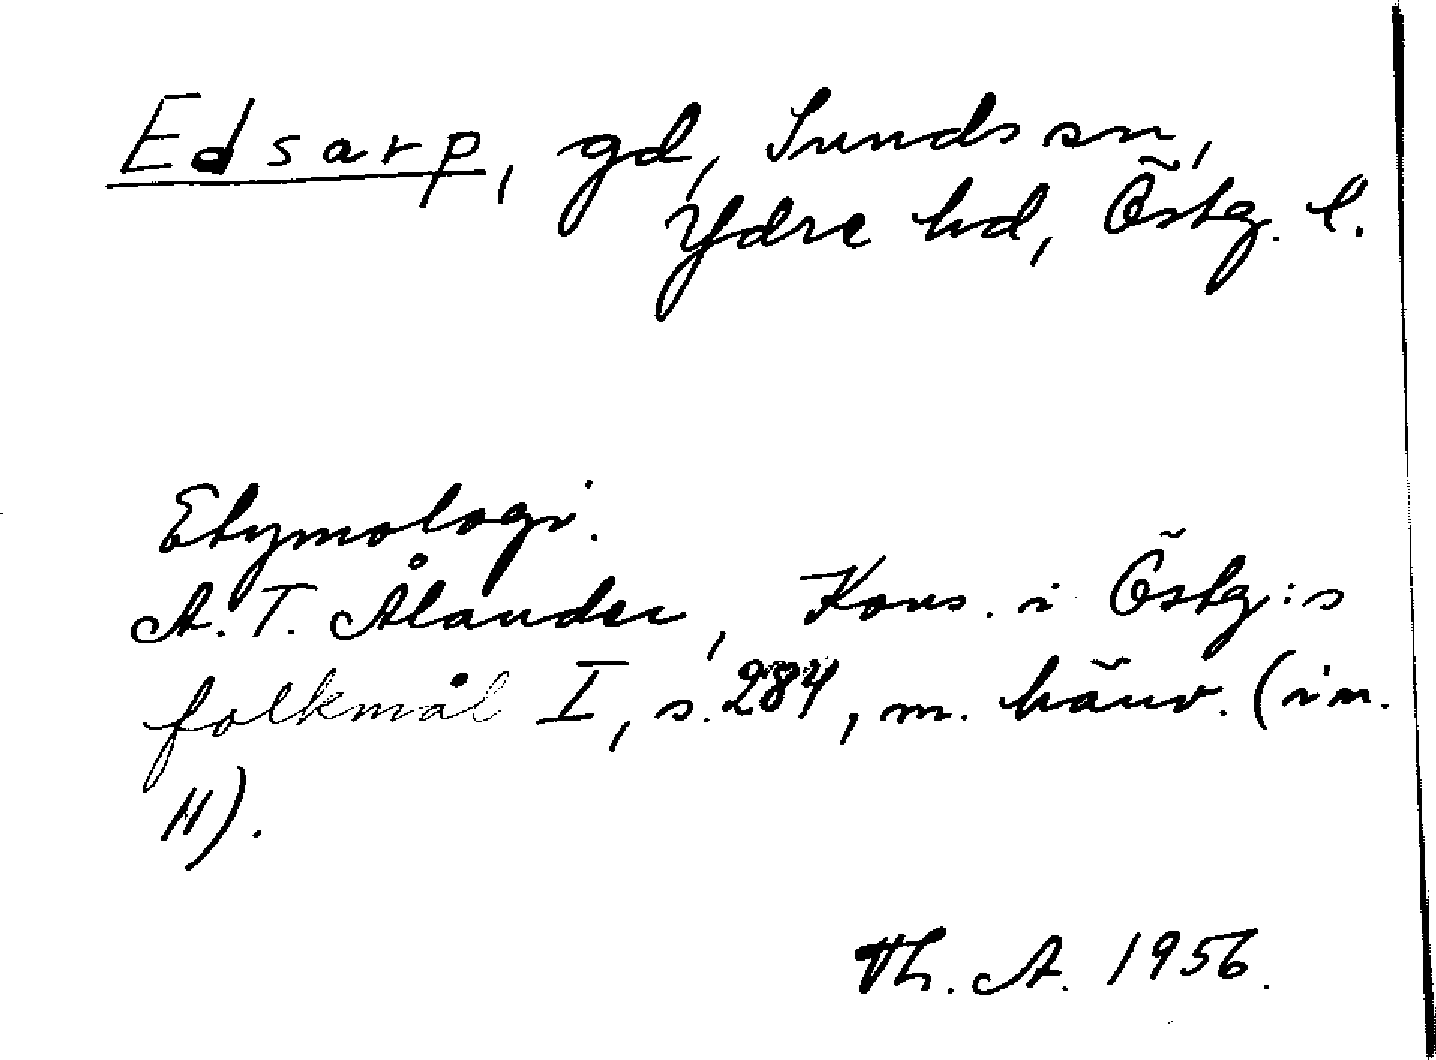 Edsarp, gd, Sunds sn,
Ydre hd, Östg. l.
Etymologi.
A. T. Ålander, Kons. i Östg:s
folkmål I, s. 284, m. hänv. (in.
H).
Th. A. 1956.